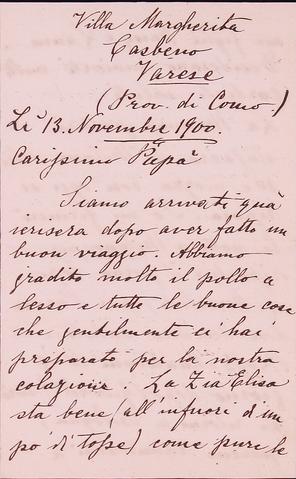 Villa Margherita
Casbeno
Varese
(Prov. di Como)
Lì 13. Novembre 1900.
Carissimo Papà
Siamo arrivati quà
ierisera dopo aver fatto un
buon viaggio. Abbiamo
gradito molto il pollo a
lesso e tutte le buone cose
che gentilmente ci hai
preparato per la nostra
colazione. La Zia Elisa
sta bene (all'infuori d'un
po' di tosse) come pure le